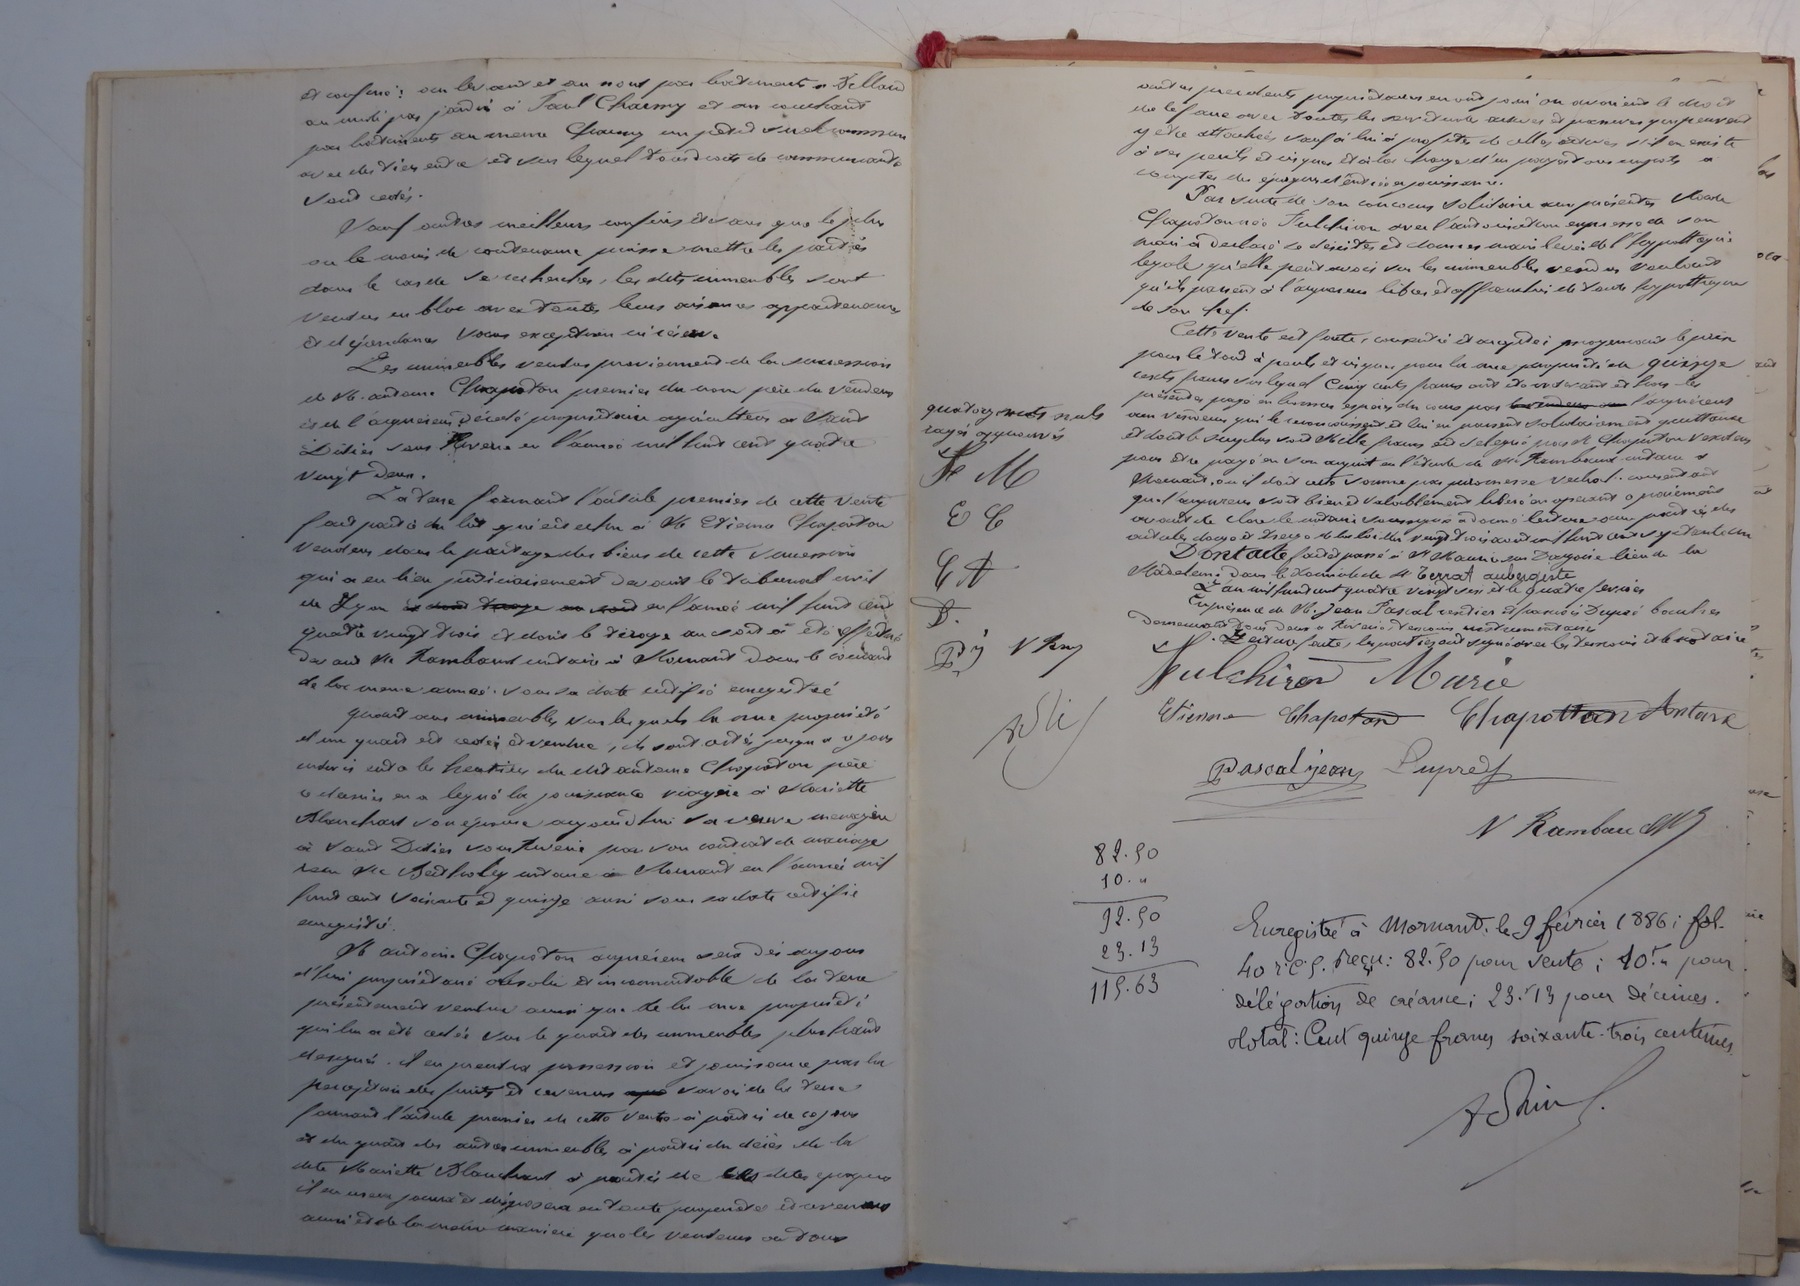 et confiné: au levant et au nord par bâtiments à
au midi par jardin à Paul Charmy et au couchant
par bâtiments au même Charmy un puits
avec et sur lequel droits de communauté
sont cédés.
Sauf autres meilleurs confins et sans que le plus
ou le moins de contenance puisse mettre les parties
dans le cas de se rechercher, les dits immeubles sont
vendus en bloc avec toutes leurs aisances appartenances
et dépendances sans exception ni réserve.
Les immeubles vendus proviennent de la succession
de Mr antoine Chapoton premier du nom père du vendeur
et de l'acquéreur, décédé propriétaire agriculteur à Saint
Didier sous Riverie en l'année mil huit cent quatre
vingt deux.
La terre formant l'article premier de cette vente
fait partie du lot qui est échu à Mr Etienne Chapoton
vendeur dans le partage des biens de cette succession
qui a eu lieu judiciairement devant le tribunal civil
de Lyon en l'année mil huit cent
quatre vingt trois et dont le tirage au sort a été effectué
devant Me Rambaud notaire à Mornant dans le courant
de la même année. sous sa date enregistré
Quant aux immeubles sur lesquels la nue propriété
d'un quart est cédée et vendue, ils sont restés jusqu'à ce jour
indivis entre les héritiers du dit antoine Chapoton père
ce dernier en a légué la jouissance viagère à Mariette
Blanchard son épouse aujourd'hui sa veuve ménagère
à Saint Didier sous Riverie par son contrat de mariage
reçu Me notaire à Mornant en l'année mil
huit cent soixante et quinze aussi sous sa date
enregistré.
Mr antoine Chapoton acquéreur sera dès aujour
d'hui propriétaire absolu et incommutable de la terre
présentement vendue ainsi que de la nue propriété
qui lui a été cédée sur le quart des immeubles plus haut
désignés. il en prendra possession et jouissance par la
perception des fruits et revenus savoir de la terre
formant l'article premier de cette vente à partir de ce jour
et du quart des autres immeubles à partir du décès de la
dite Mariette Blanchard à partir de dites époques
il en usera jouira et disposera en toute propriété et revenus
ainsi et de la même manière que les vendeurs ou tous
autres précédents propriétaires en ont joui ou avaient le droit
de le faire avec toutes les servitudes actives et passives qui peuvent
y être attachées sauf à lui à profiter de celles actives s'il en existe
à ses périls et risques et à la charge d'en payer tous impôts à
compter des époques d'entrée en jouissance.
Par suite de son concours solidaire aux présentes Mme
Chapoton née Fulchiron avec l'autorisation expresse de son
mari a déclaré se désister et donner main levée de l'hypothèque
légale qu'elle peut avoir sur les immeubles vendus voulant
qu'ils passent à l'acquéreur libres et affranchis de toute hypothèque
de son chef.
Cette vente est faite, consentie et acceptée moyennant le prix
pour le tout à périls et risques pour la nue propriété de quinze
cents francs sur lequel Cinq cents francs ont été avant et hors les
présentes payé en bonnes espèces du cours par l'acquéreur
aux vendeurs qui le reconnaissent et lui en passent solidairement quittance
et dont le surplus soit Mille francs est délégué par Mr Chapoton vendeur
pour être payé en son acquit en l'étude de Me Rambaud notaire à
Mornant, ou il doit cette somme par promesse
que l'acquéreur soit bien et valablement libéré en opérant ce paiement
avant de clore le notaire soussigné a donné lecture aux parties des
articles douze et treize de la loi du vingt trois août mil huit cent soixante onze
Dont acte fait et passé à St Maurice sur Dargoire lieu de la
Madeleine dans le domicile de Mr Terrat aubergiste
L'an mil huit cent quatre vingt six et le quatre février
En présence de Mr Jean Pascal rentier et françois Dupré
demeurant tous deux à Riverie, témoins instrumentaires
Lecture faite, les parties ont signé avec les témoins et le notaire
quatorze mots nuls
rayés approuvés
F M
E C
C A
D.
P j N Ramb
Fulchiron Marie
Etienne Chapoton Chapotton Antoine
Pascal jean Dupré f
N Rambaud
82.50
10. "
92.50
23.13
115.63
Enregistré à Mornant, le 9 février 1886; fol.
40 r. c. 5. Reçu: 82.50 pour vente; 10f " pour
délégation de créance; 23f 13 pour décimes.
total: Cent quinze francs soixante-trois centimes.